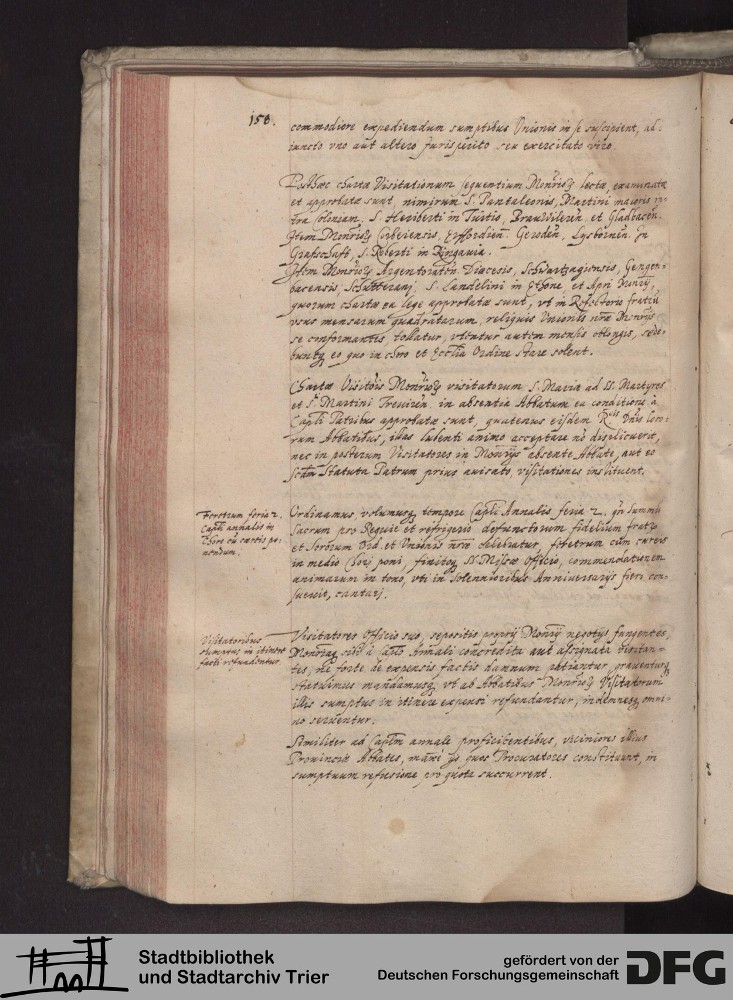 158.
commodiore expediendum sumptibus Unionis in se suscipient, ad-
iuncto vno aut altero jurisperito seu exercitato viro.
Posthæc chartæ Visitationum sequentium Monriorz lectæ, examinatæ
et approbatæ sunt, nimirum S. Pantaleonis, Martini maioris in-
tra Coloniam, S. Heriberti in Tuitio, Brauwileren et Gladbacen.
Item Monriorz Corbeiensis, Erffordien. Geroden, Lysbornen. In
Grafschaft, S. Roberti in Ringauia.
Item Monriorz Argentoraten. Diœcesis, Schwartzagiensis, Gengen-
bacensis, Schutteranj, S. Landelini in Ethone, et Apri Monrij,
quorum chartæ ea lege approbatæ sunt, vt in Refectorio fratrū
vsus mensarum quadratarum, reliquis Unionis nræ Monrijs
se conformantes, tollatur, vtentur autem mensis oblongis, sede-
buntq eo quo in choro et Ecclīa Ordine stare solent.
Chartæ Visitōis Monriorz visitatorum S. Mariæ ad SS. Martyres
et S. Martini Treuiren. in absentia Abbatum ea conditione à
Capli Patribus approbatæ sunt, quatenus eisdem R.dis Dnis loco-
rum Abbatibus, illas lubenti animo acceptare nō displicuerit,
nec in posterum Visitatores in Monrijs absente Abbate, aut eo
scdm Statuta Patrum prius auisato, visitationes instituent.
Feretrum feria 2.
Capli annalis in
Choro cū cæreis po-
nendum.
Ordinamus, volumusq tempore Capli Annalis feria 2. qn summū
Sacrum pro Requie et refrigerio defunctorum fidelium fratrū
et Sororum Ord. et Unionis nræ celebratur, feretrum cum cereis
in medio Chorj poni, finitoq S. Missæ Officio, commendationem
animarum in tono, vti in solennioribus Anniuersarijs fieri con-
sueuit, cantarj.
Visitatoribus
sumptus in itinere
facti refundentur.
Visitatores Officio suo, sepositis proprij Monrij negotijs fungentes,
Monriaq sibi à Caplo Annali concredita aut assignata visitan-
tes, ne forte de expensis factis damnum patiantur, grauenturq
statuimus mandamusq, vt ab Abbatibus Monriorz Visitatorum
illis sumptus in itinere expensi refundantur, indemnesq omni-
no seruentur.
Similiter ad Caplm annale proficiscentibus, viciniores illius
Prouinciæ Abbates, maxè ijs, quos Procuratores constituunt, in
sumptuum refusione pro quota succurrent.
Stadtbibliothek
und Stadtarchiv Trier
gefördert von der
Deutschen Forschungsgemeinschaft
DFG